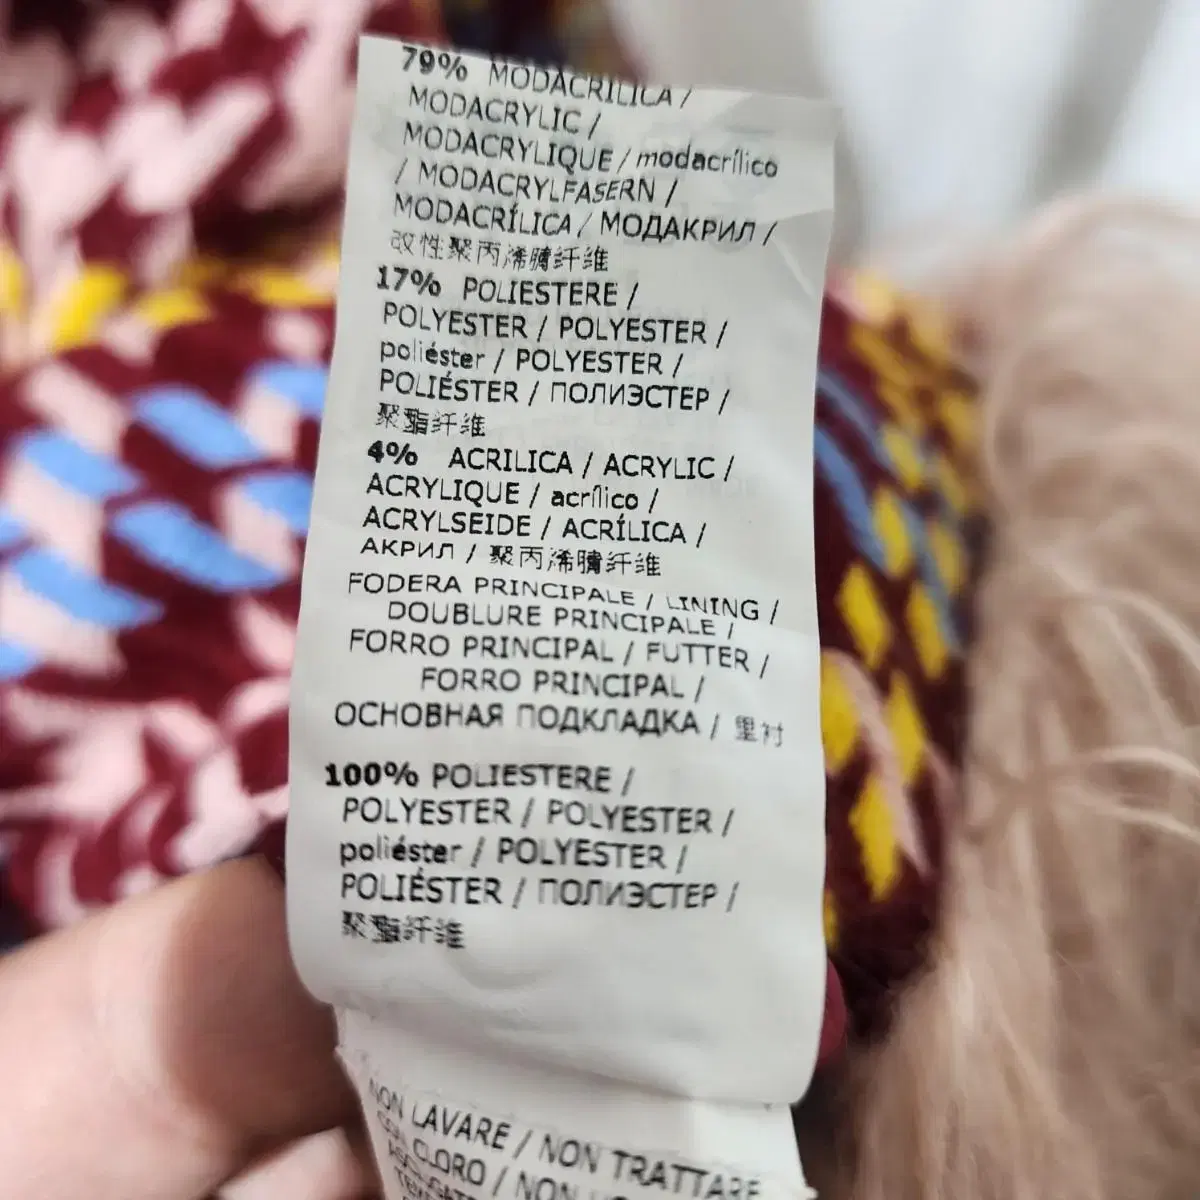 79% MODACRILICA /
MODACRYLIC /
MODACRYLIQUE / modacrílico
/ MODACRYLFASERN /
MODACRÍLICA / МОДАКРИЛ /
改性聚丙烯腈纤维
17% POLIESTERE /
POLYESTER / POLYESTER /
poliéster / POLYESTER /
POLIÉSTER / ПОЛИЭСТЕР /
聚酯纤维
4% ACRILICA / ACRYLIC /
ACRYLIQUE / acrílico /
ACRYLSEIDE / ACRÍLICA /
АКРИЛ / 聚丙烯腈纤维
FODERA PRINCIPALE / LINING /
DOUBLURE PRINCIPALE /
FORRO PRINCIPAL / FUTTER /
FORRO PRINCIPAL /
ОСНОВНАЯ ПОДКЛАДКА / 里衬
100% POLIESTERE /
POLYESTER / POLYESTER /
poliéster / POLYESTER /
POLIÉSTER / ПОЛИЭСТЕР /
聚酯纤维
NON LAVARE / NON TRATTARE
CON CLORO / NON